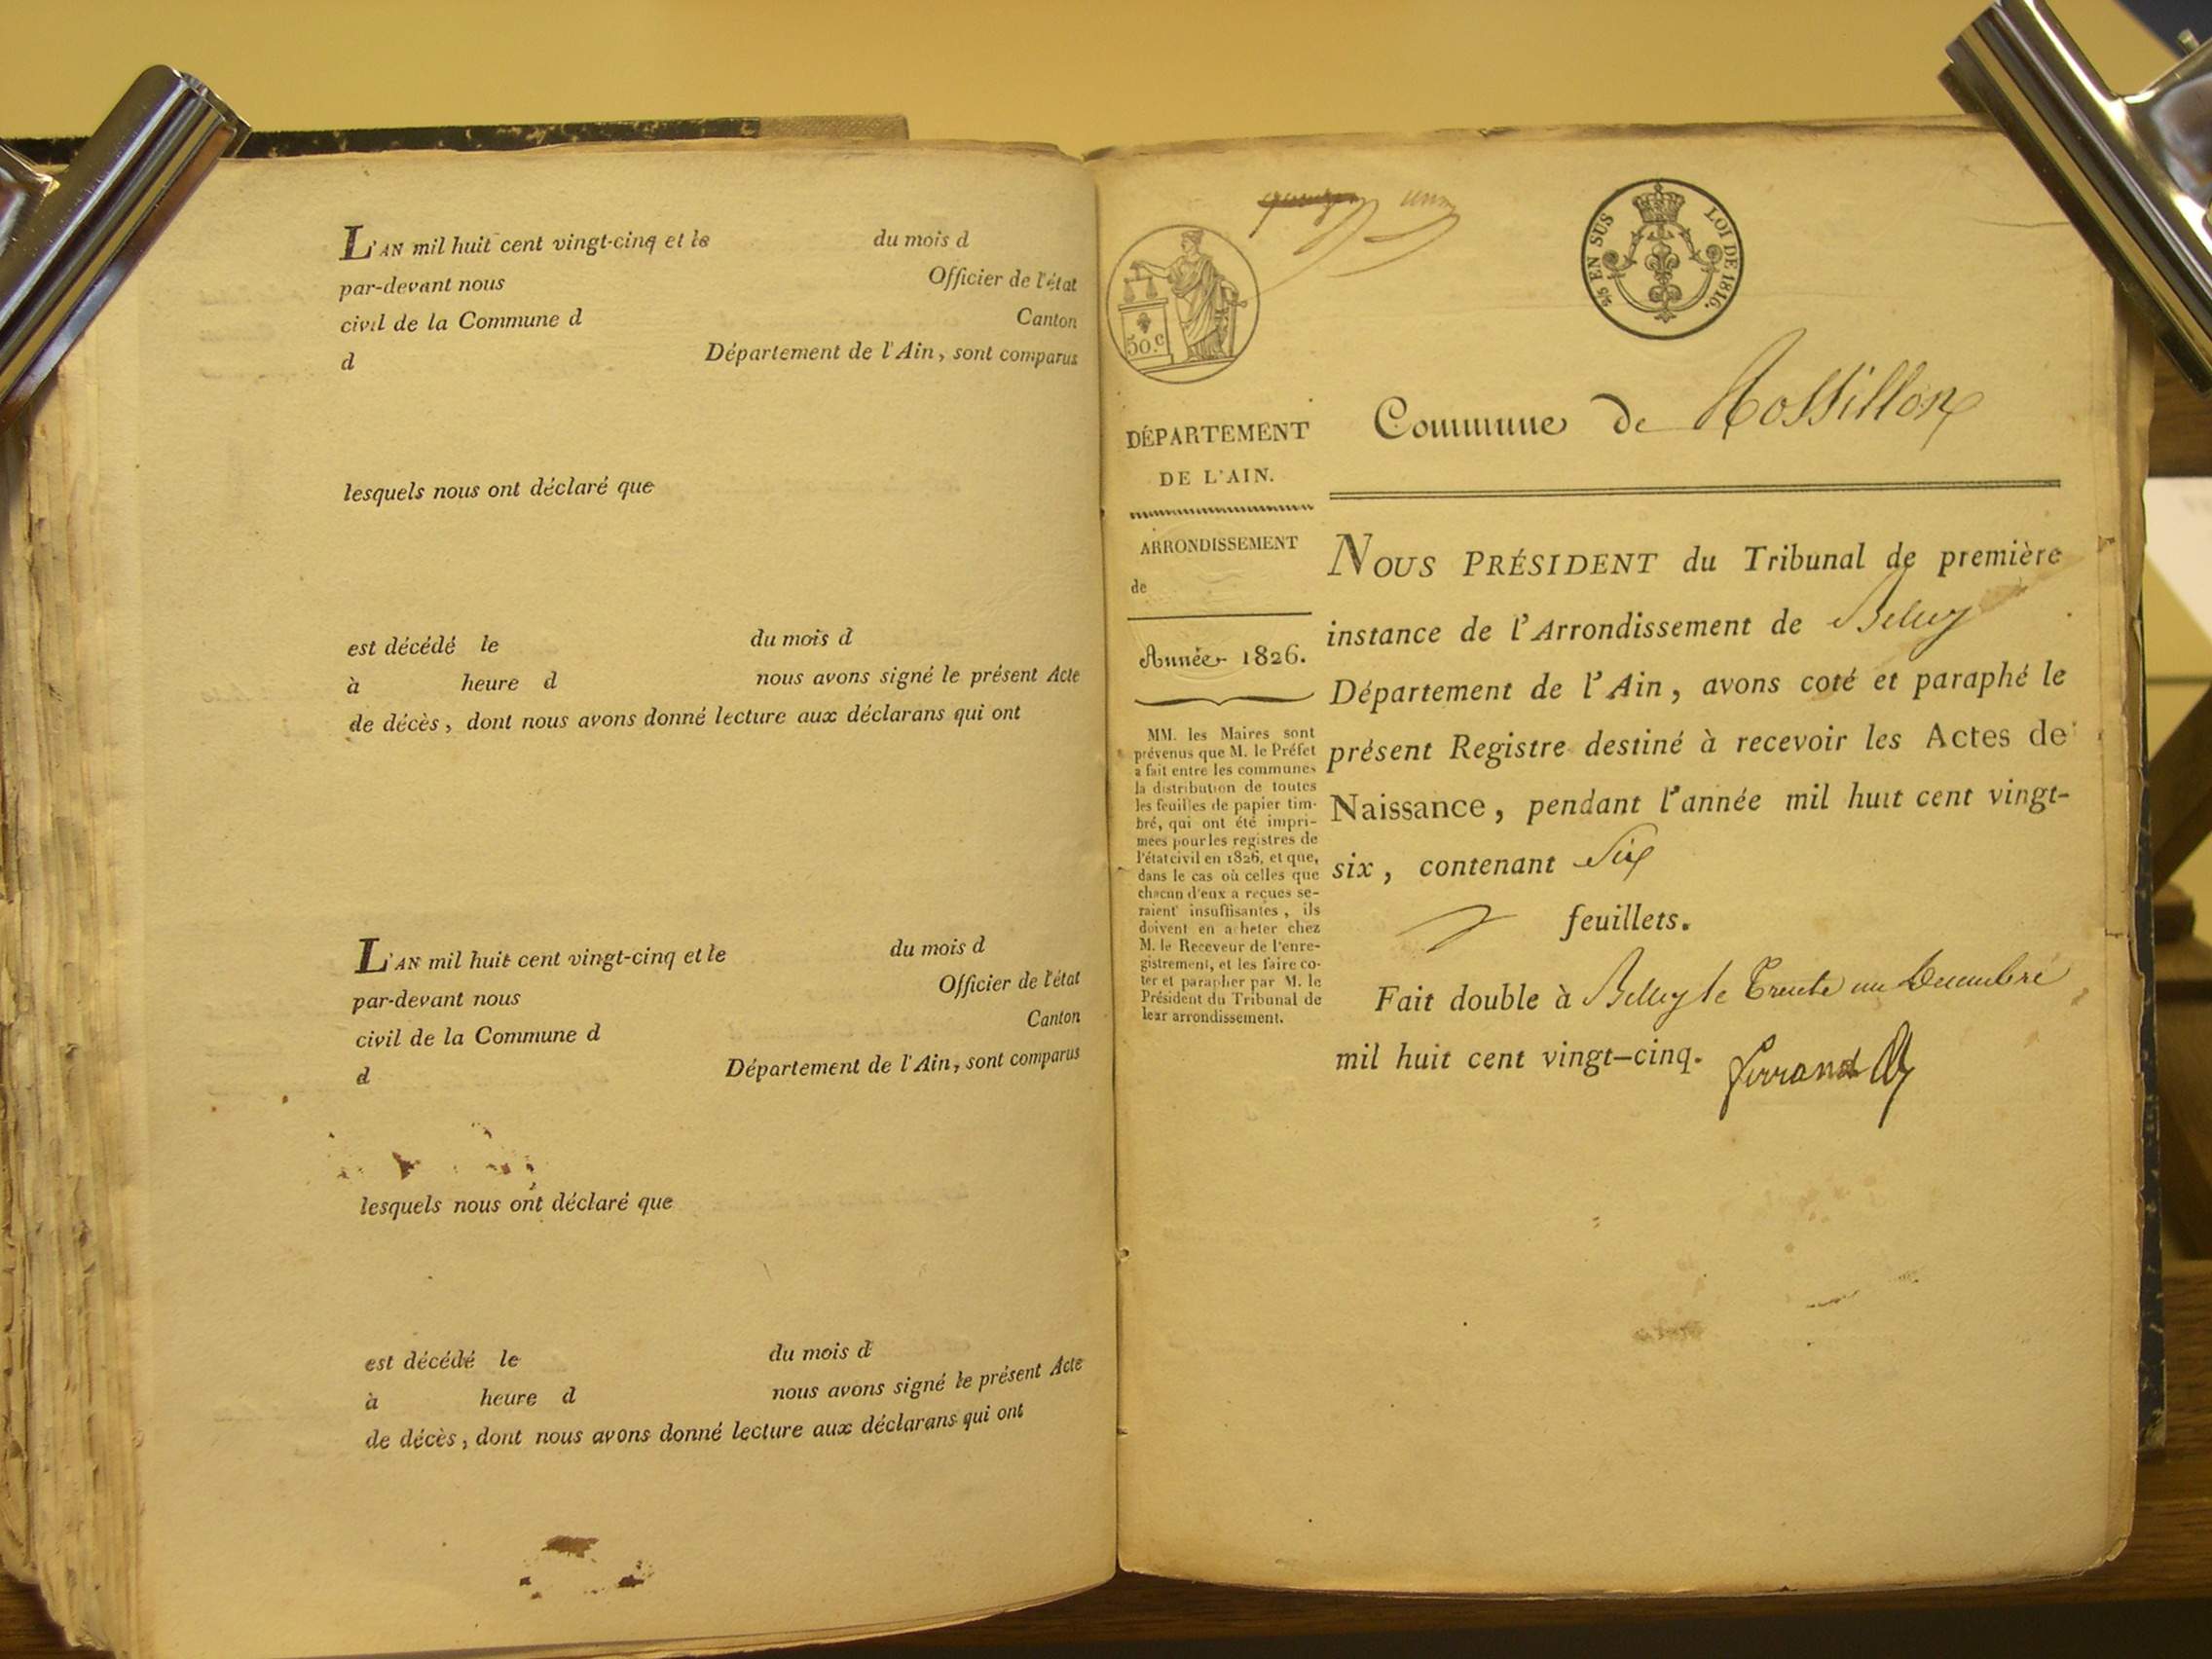 L'AN mil huit cent vingt-cinq et le du mois d
par-devant nous Officier de l'état
civil de la Commune d Canton
d Département de l'Ain, sont comparus
lesquels nous ont déclaré que
est décédé le du mois d
à heure d nous avons signé le présent Acte
de décès, dont nous avons donné lecture aux déclarans qui ont
L'AN mil huit cent vingt-cinq et le du mois d
par-devant nous Officier de l'état
civil de la Commune d Canton
d Département de l'Ain, sont comparus
lesquels nous ont déclaré que
est décédé le du mois d
à heure d nous avons signé le présent Acte
de décès, dont nous avons donné lecture aux déclarans qui ont
50.c
EN SUS LOI DE 1816.
DÉPARTEMENT
DE L'AIN.
ARRONDISSEMENT
de
Année 1826.
MM. les Maires sont
prévenus que M. le Préfet
a fait entre les communes
la distribution de toutes
les feuilles de papier tim-
bré, qui ont été impri-
mées pour les registres de
l'état civil en 1826, et que,
dans le cas où celles que
chacun d'eux a reçues se-
raient insuffisantes, ils
doivent en acheter chez
M. le Receveur de l'enre-
gistrement, et les faire co-
ter et parapher par M. le
Président du Tribunal de
leur arrondissement.
Commune de Rossillon
NOUS PRÉSIDENT du Tribunal de première
instance de l'Arrondissement de Belley
Département de l'Ain, avons coté et paraphé le
présent Registre destiné à recevoir les Actes de
Naissance, pendant l'année mil huit cent vingt-
six, contenant Six
feuillets.
Fait double à Belley le Trente un Decembre
mil huit cent vingt-cinq.